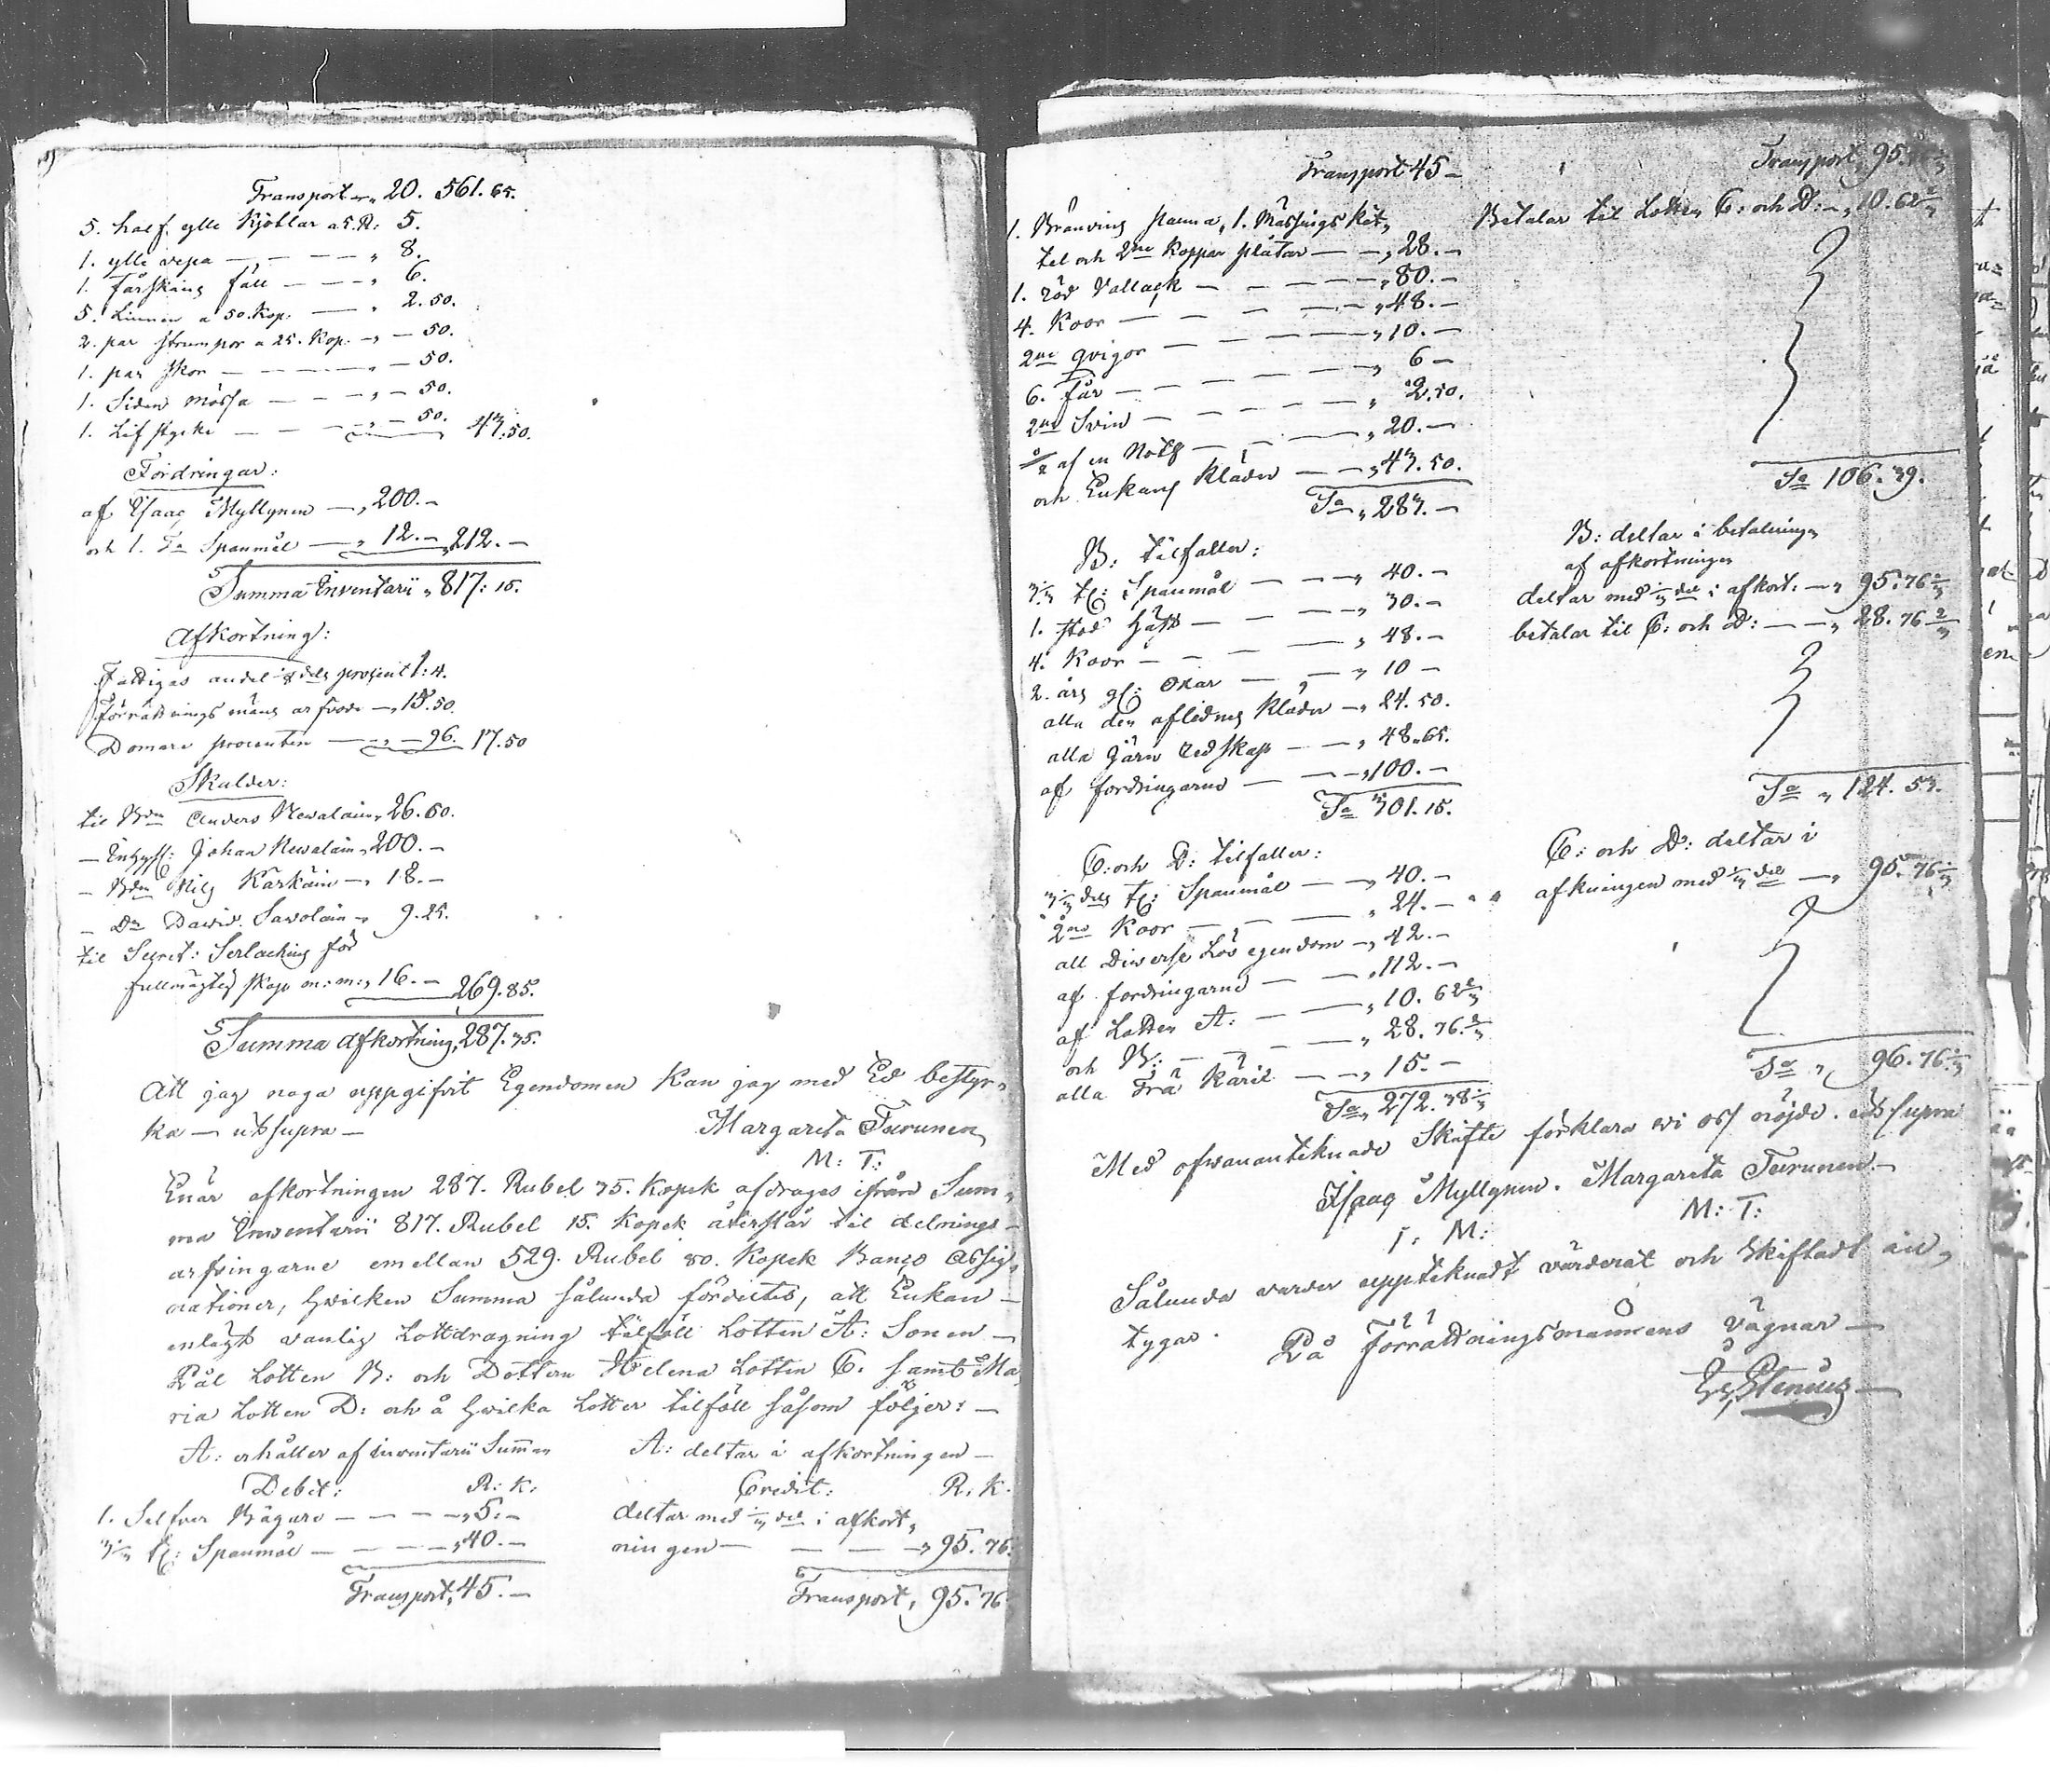 Transport — „ 20. 561. 65.
5. half. ylle Kjortlar a 1. R: 5.
1. ylle vepa — „ — — — „ 8.
1. Fårskins fäll — — — „ 6.
5. Linnen a 50. Kop: — — „ 2. 50.
2. par strumpor a 25. Kop. — „ — 50.
1. par skor — — — — „ — 50.
1. Siden mössa — — — „ — 50.
1. Lifstycke — — — „ — 50. 43. 50.
Fordringar:
af Isaac Myllynen — „ 200. —
och 1. Ta Spanmål — „ 12. — „ 212. —
Summa Inventarii „ 817: 15.
Afkortning:
Fattigas andel ⅛ dels procent 1: 4.
Förrättnings mäns arfvode — „ 15. 50.
Domare procenten — „ — 96. 17. 50
Skulder:
til Bdn Anders Nevalain „ 26. 60.
— Enhysl: Johan Nevalain „ 200. —
— Bdn Nils Karkain — „ 18. —
— Dn David. Savolain „ 9. 25.
til Secret: Serlachius för
fullmägtig skap m: m: „ 16. — 269. 85.
Summa Afkortning, 287. 35.
Att jag noga uppgifvit Egendomen Kan jag med Ed bestyr„
ka — ut supra — Margareta Turunen
M: T:
Enär afkortningen 287. Rubel 35. Kopek afdrages ifrån Sum„
ma Inventarii 817. Rubel 15. Kopek återstår til delnings —
arfvingarne emellan 529. Rubel 80. Kopek Banco Assig„
nationer, hvilken Summa sålunda fördeltes, att Enkan —
enligt vanlig Lottdragning tilföll Lotten A: Sonen —
Pål Lotten B: och Dottern Helena Lotten C. samt Ma
ria Lotten D: och å hvilka Lotter tilföll såsom följer: —
A: erhåller af inventarii Summan A: deltar i afkortningen —
Debet: R: K: Credit: R. K.
1. Silfver Bägare — — — „ 5. — deltar med ⅓ del i afkort„
3⅓ t: Spanmål — — — — „ 40. — ningen — — — — „ 95. 76.
Transport, 45. — Transport, 95. 76
Transport 45 — Transport, 95.
1. Bränvins panna, 1. Mässings Kit„ Betalar til Lotten C: och D: — „ 10. 62⅔
tel och 2ne Koppar plåtar — — „ 28. —
1. röd Vallack — — — — — „ 80. —
4. Koor — — — — — „ 48. —
2ne qvigor — — — — — „ 10. —
6. Får — — — — — — „ 6 —
2ne Svin — — — — — „ 2. 50.
½ af en Noth — — — — „ 20. —
och Enkans Kläder — — „ 43. 50. Sa 106. 39.
Sa „ 283. —
B: tilfaller: B: deltar i betalningen
af afkortningen
3⅓ t: Spanmål — — — „ 40. — deltar med ⅓ del i afkort: — „ 95. 76⅓
1. stod häst — — — — „ 30. — betalar til C: och D: — — „ 28. 76⅔
4. Koor — — — — „ 48. —
2. års gl: Oxar — „ — „ 10 —
alla den aflidnes Kläder — „ 24. 50.
alla Järn redskap — — „ 48. 65.
af fordringarne — — — „ 100. —
Sa 301. 15. Sa „ 124. 53.
C: och D: tilfaller: C: och D: deltar i
3⅓ dels t: Spanmål — — „ 40. — afkningen med ⅓ del — „ 95. 76⅓
2ne Koor — — — — „ 24. —
all Diverse Lös egendom — „ 42. —
af fordringarne — — „ 112. —
af Lotten A: — — — „ 10. 62⅔
och B: — — — — „ 28. 76⅔
alla Trä Käril — — „ 15. — Sa „ 96. 76⅓
Sa „ 272. 38⅓
Med ofvanantecknade Skifte förklara vi oss nöjde. ut supra
Isaac Myllynen. Margareta Turunen —
I: M: M: T:
Sålunda varder upptecknadt värderat och skiftadt an„
tygar. På Förrättningsmännens vägnar —
Stenius —